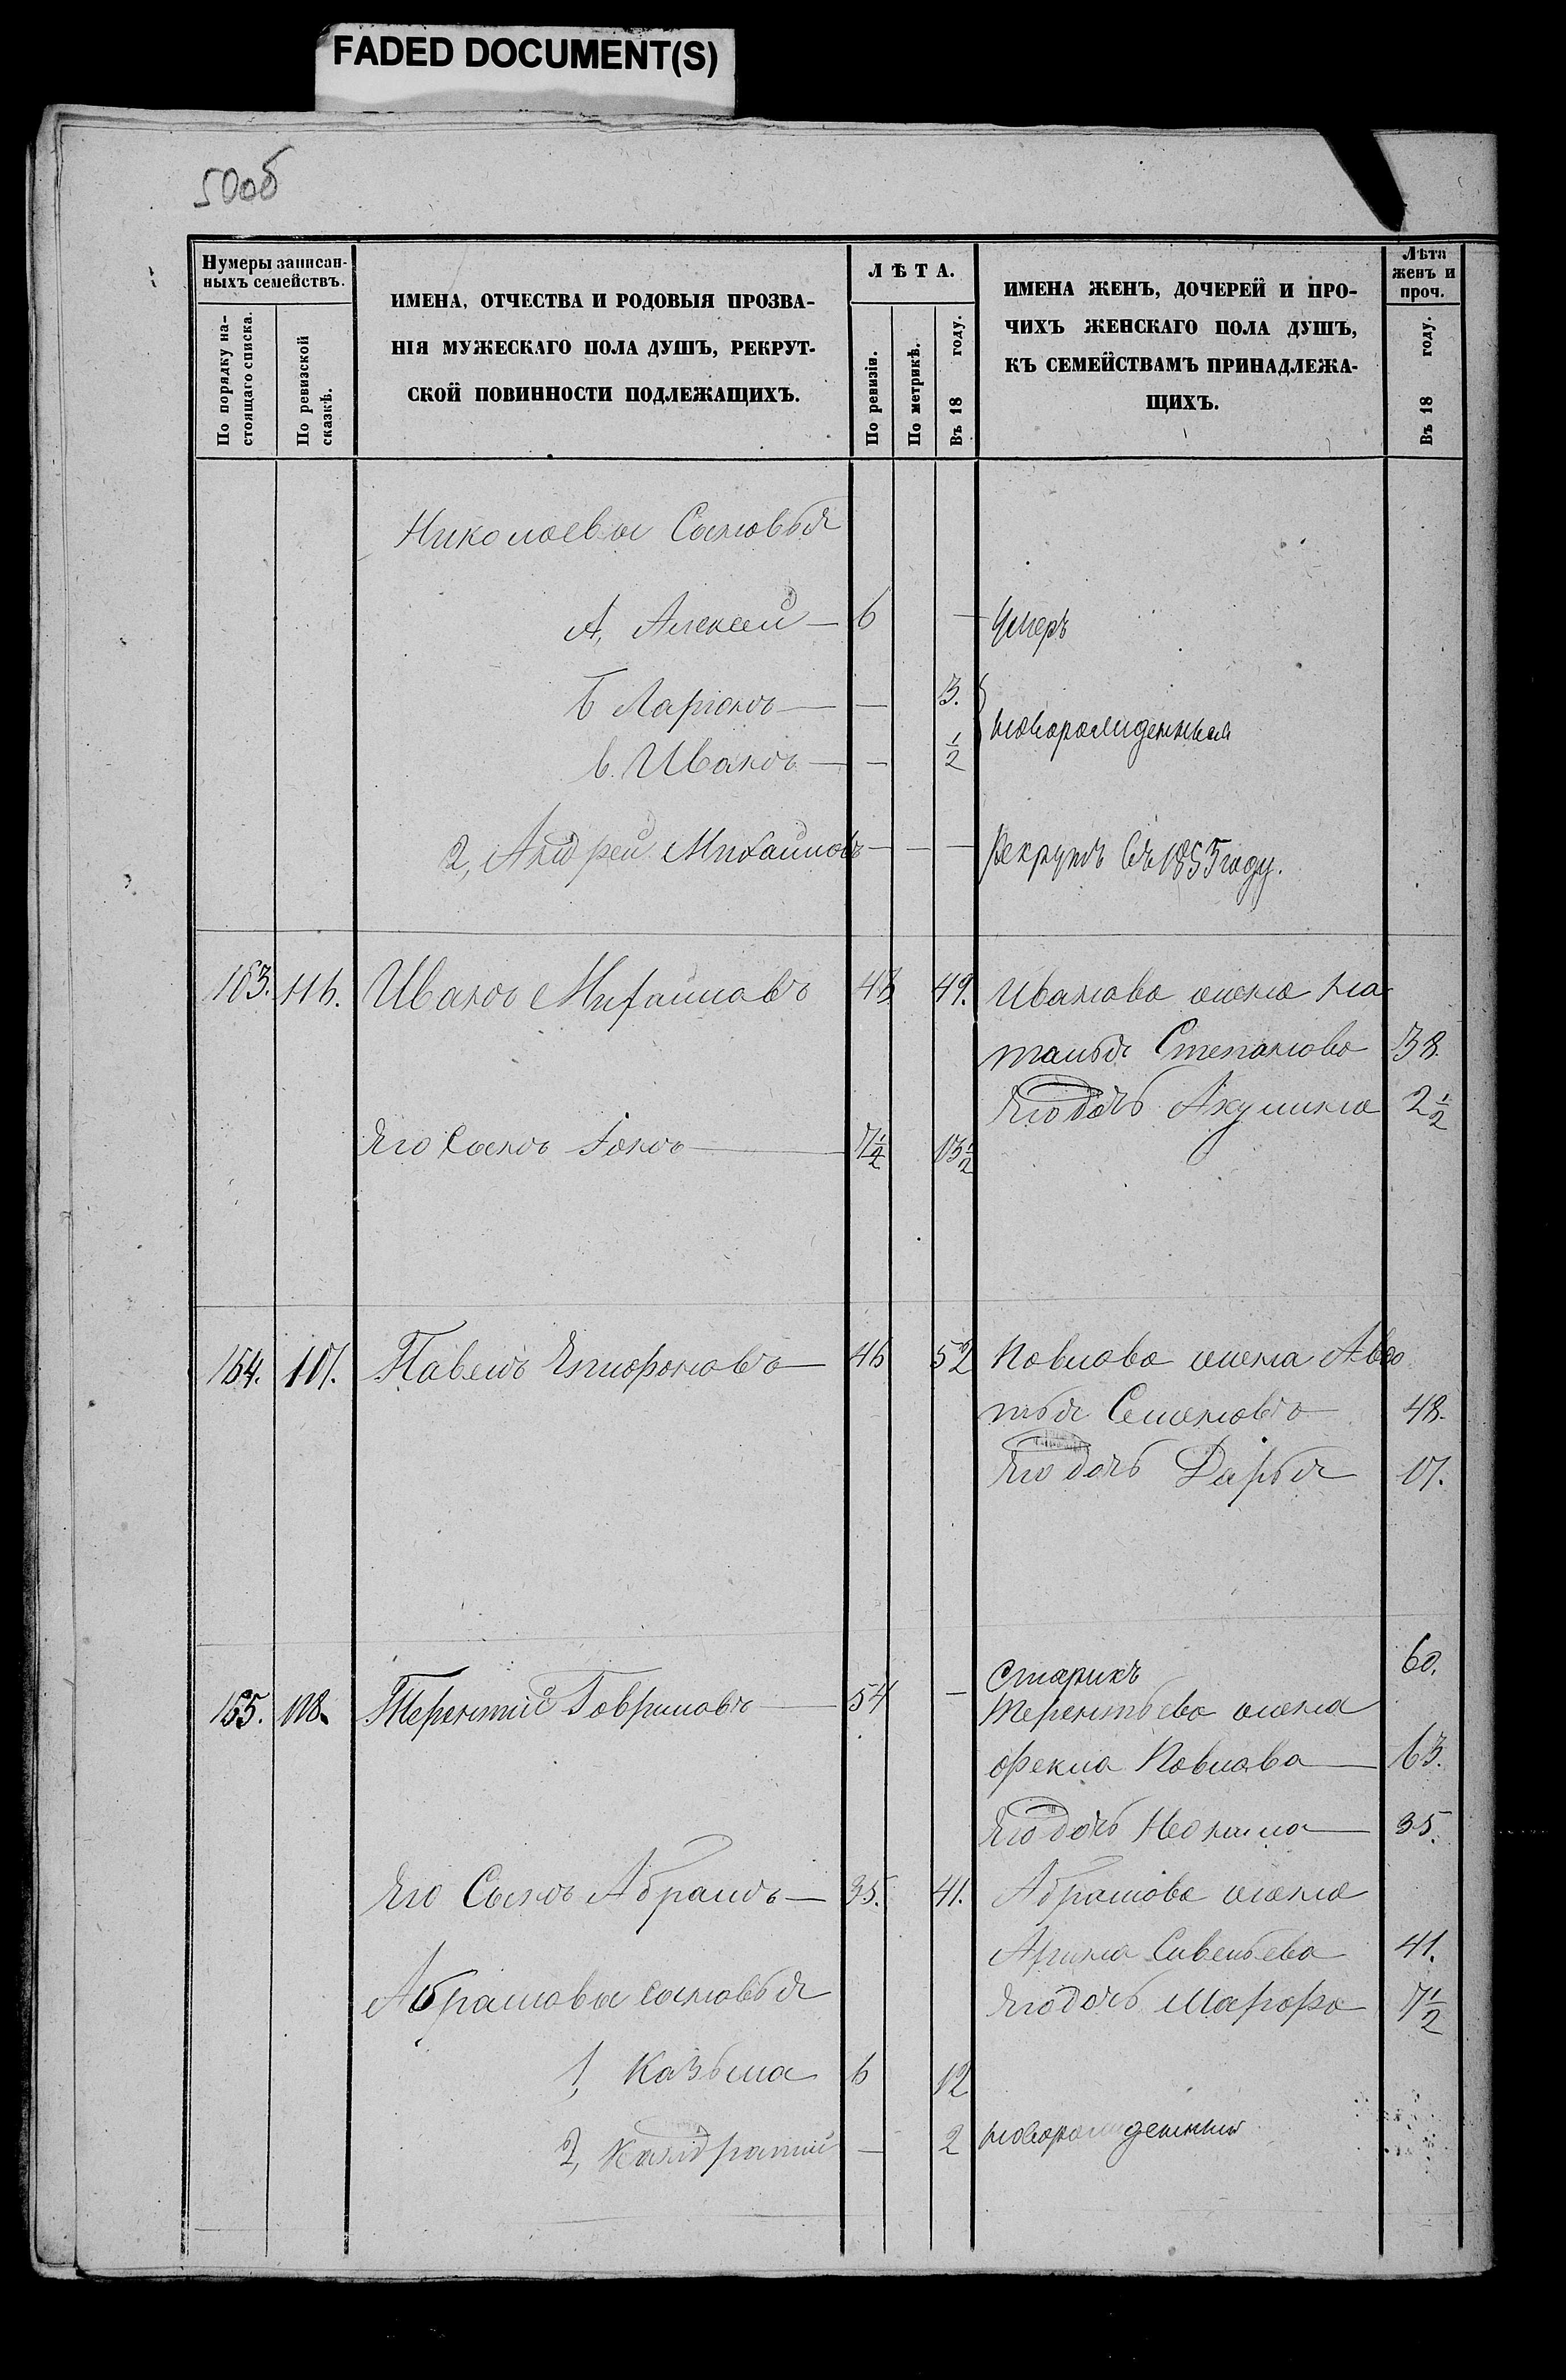 FADED DOCUMENT(S)
50об
Нумеры записан-
ныхъ семействъ.
По порядку на-
стоящаго списка.
По ревизской
сказкѣ.
ИМЕНА, ОТЧЕСТВА И РОДОВЫЯ ПРОЗВА-
НІЯ МУЖЕСКАГО ПОЛА ДУШЪ, РЕКРУТ-
СКОЙ ПОВИННОСТИ ПОДЛЕЖАЩИХЪ.
ЛѢТА.
По ревизіи.
По метрикѣ.
Въ 18 году.
ИМЕНА ЖЕНЪ, ДОЧЕРЕЙ И ПРО-
ЧИХЪ ЖЕНСКАГО ПОЛА ДУШЪ,
КЪ СЕМЕЙСТВАМЪ ПРИНАДЛЕЖА-
ЩИХЪ.
Лѣта
женъ и
проч.
Въ 18 году.
Николаевы Сыновья
А, Алексей — 6 — Умеръ
Б Ларіонъ — — 3.
новорожденныя
в. Иванъ — — 1/2
2, Андрей Михайловъ — — — рекрутъ въ 1855 году.
163. 116. Иванъ Михайловъ 43 49. Иванова жена На
талья Степанова 38.
Его дочь Акулина 2 1/2
Его Сынъ Іонъ — 7 1/2 13 1/2
164. 117. Павелъ Епифановъ — 46 52 Павлова жена Авдо
тья Семенова — 48.
Его дочь Дарья 17.
Старикъ 60.
165. 118. Терентій Гавриловъ — 54 — Терентьева жена
Фекла Павлова — 63.
Его дочь Неонила — 35.
Его Сынъ Абрамъ — 35. 41. Абрамова жена
Арина Савельева 41.
Абрамовы сыновья Его дочь Марфа 7 1/2
1, Казьма 6 12
2, Кандратий — 2 новорожденный